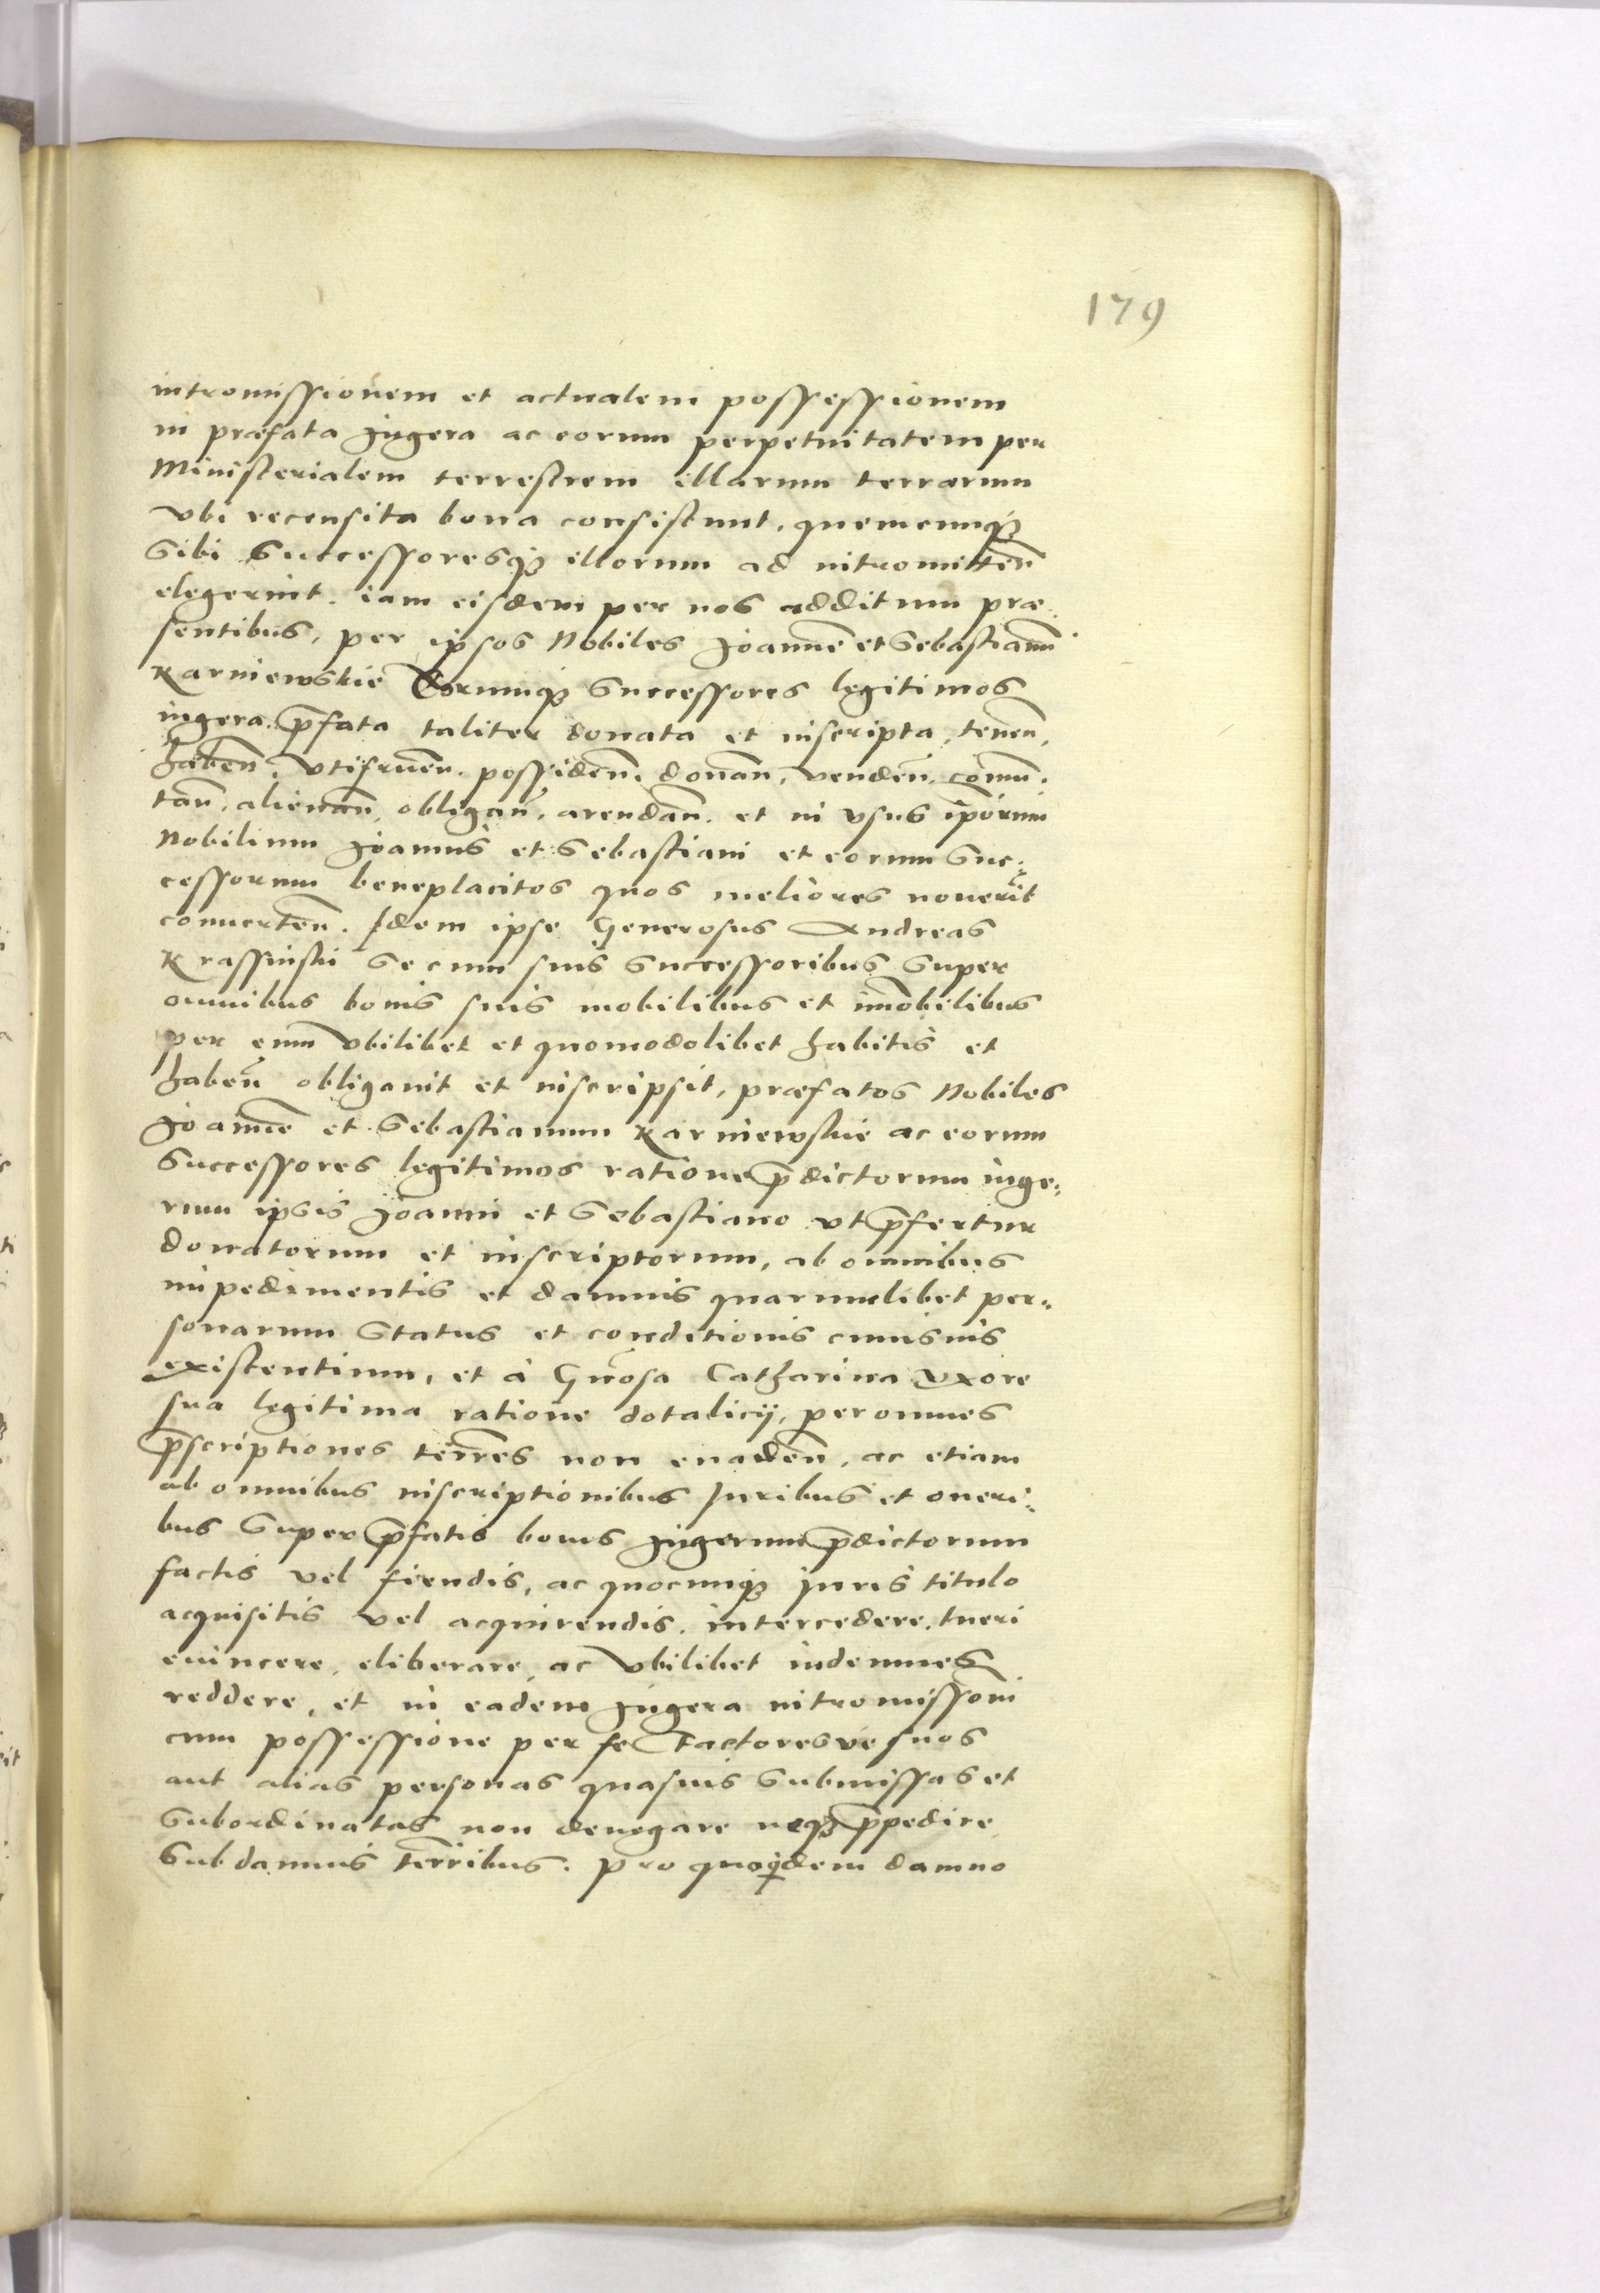 179
intromissionem et actualem possessionem
in præfata Jugera ac eorum perpetuitatem per
Ministerialem terrestrem illarum terrarum
vbi recensita bona consistunt, quemcunq3
Sibi Successoresq3 illorum ad intromitten̄
elegerint. iam eisdem per nos additum præ-
sentibus, per ipsos Nobiles Joannē et Sebastianū
Karniewskie Eorumq3 Successores legitimos
iugera p̄fata taliter donata et inscripta, tenen̄,
haben̄, vtifruen̄, possiden̄, donan̄, venden̄, comū-
tan̄, alienan̄, obligan̄, arendan̄. et in vsus ip̄orum
Nobilium Joannis et Sebastiani et eorum Suc-
cessorum beneplacitos quos meliores nouerīt
conuerten̄. Idem ipse Generosus Andreas
Krassinski Se cum suis Successoribus Super
omnibus bonis suis mobilibus et im̄obilibus
per eum vbilibet et quomodolibet habitis et
haben̄ obligauit et inscripsit, præfatos Nobiles
Joannē et Sebastianum Karniewskie ac eorum
Successores legitimos ratione p̄dictorum iuge-
rum ipsis Joanni et Sebastiano vt p̄fertur
donatorum et inscriptorum, ab omnibus
impedimentis et damnis quarumlibet per-
sonarum Status et conditionis cuiusuis
existentium, et à Gn̄osa Catharina vxore
sua legitima ratione dotalicij, per omnes
p̄scriptiones terr̄res non euaden̄, ac etiam
ab omnibus inscriptionibus Juribus et oneri-
bus Super p̄fatis bonis Jugerum p̄dictorum
factis vel fiendis, ac quocunq3 Juris titulo
acquisitis vel acquirendis. intercedere, tueri
euincere, eliberare, ac vbilibet indemnes
reddere, et in eadem Jugera intromissioni
cum possessione per se Factoresve suos
aut alias personas quasuis Submissas et
Subordinatas non denegare neq3 p̄pedire
Sub damnis terr̄ribus. Pro quoquidem damno